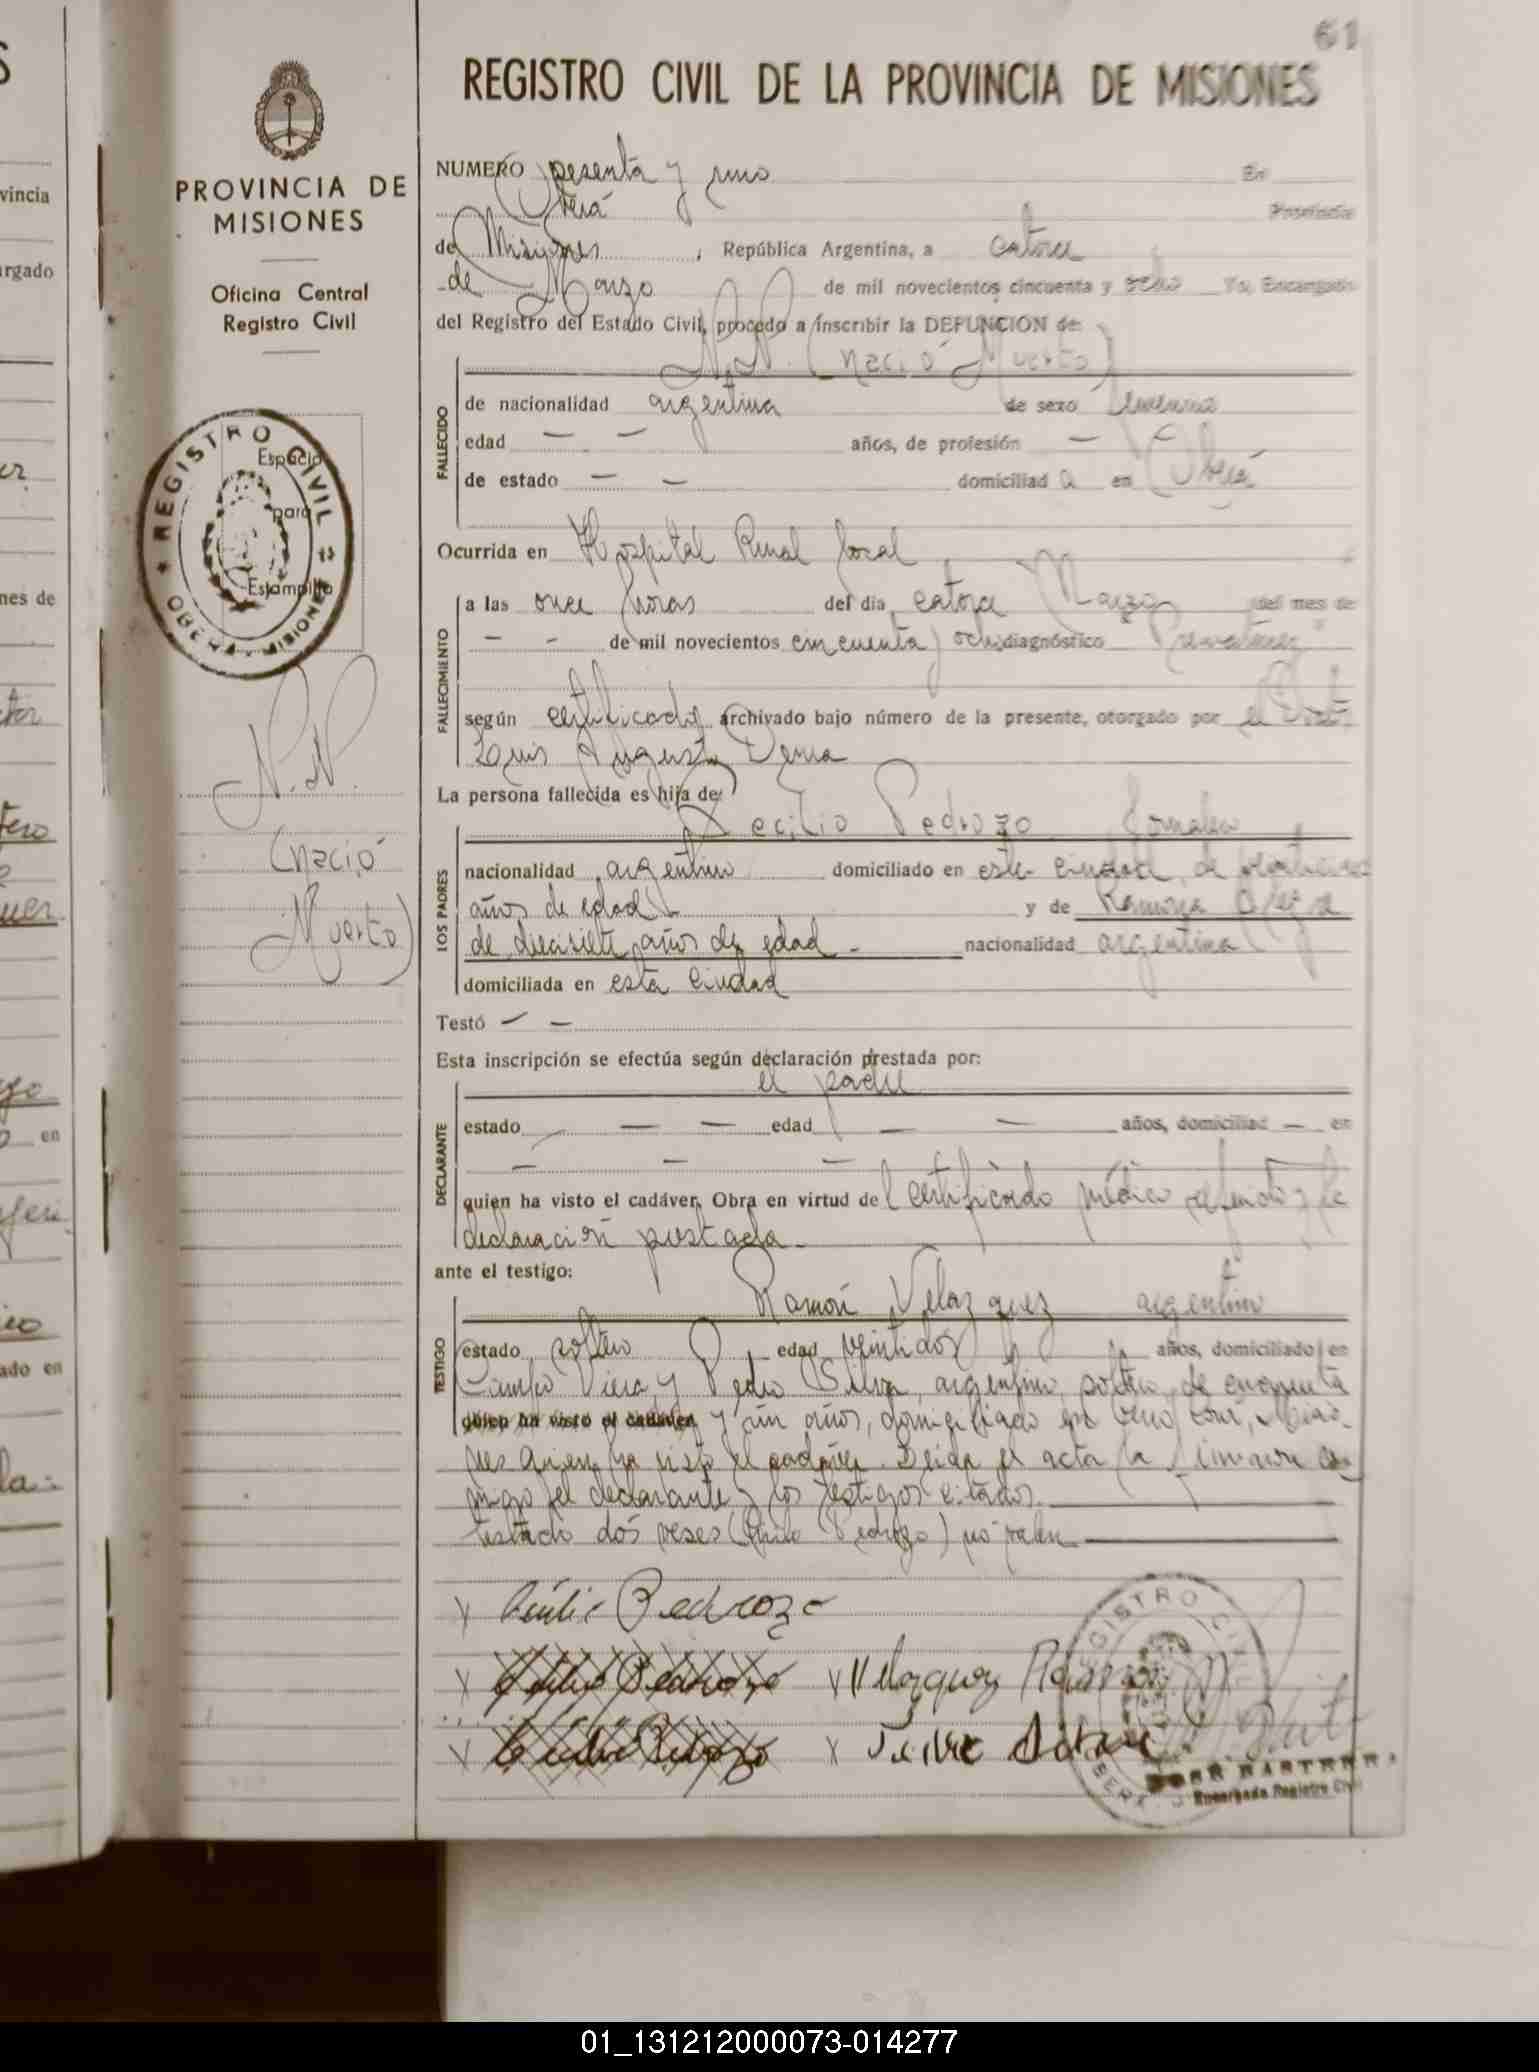 61
REGISTRO CIVIL DE LA PROVINCIA DE MISIONES
PROVINCIA DE
MISIONES
Oficina Central
Registro Civil
REGISTRO CIVIL
OBERA MISIONES
Espacio
para
Estampilla
N.N.
(Nació
Muerto)
NUMERO sesenta y uno En
Oberá Provincia
de Misiones, República Argentina, a catorce
de Marzo de mil novecientos cincuenta y ocho Yo, Encargado
del Registro del Estado Civil, procedo a inscribir la DEFUNCION de:
N.N. (Nació Muerto)
FALLECIDO
de nacionalidad argentina de sexo femenino
edad — — años, de profesión — —
de estado — — domiciliad a en Oberá
Ocurrida en Hospital Rural local
FALLECIMIENTO
a las once horas del día catorce Marzo del mes de
— — de mil novecientos cincuenta y ocho diagnóstico
según certificado archivado bajo número de la presente, otorgado por el Doctor
Luis Augusto Derna
La persona fallecida es hija de:
LOS PADRES
Cecilio Pedrozo Jornalero
nacionalidad argentino domiciliado en esta ciudad, de
años de edad y de Ramona
de diecisiete años de edad — nacionalidad argentina
domiciliada en esta ciudad
Testó — —
Esta inscripción se efectúa según declaración prestada por:
el padre
DECLARANTE
estado — — — edad — — años, domiciliad — en
— — —
quien ha visto el cadáver. Obra en virtud del certificado médico referido y la
declaración prestada.
ante el testigo:
TESTIGO
Ramón Velazquez argentino
estado soltero edad veintidos años, domiciliado en
Campo Viera, y Pedro Silva, argentino, soltero, de cincuenta
quien ha visto el cadáver y un años, domiciliado en
nes quien ha visto el cadáver. Leida el acta la firmaron con
migo el declarante y los testigos citados.
testado dos veses (Cecilio Pedrozo) no valen
x Cecilio Pedrozo
x Cecilio Pedrozo x Velazquez Ramon
x Cecilio Pedrozo x
REGISTRO CIVIL
OBERA
Encargado Registro Civil
vincia
argado
nes de
en
ado en
01_131212000073-014277